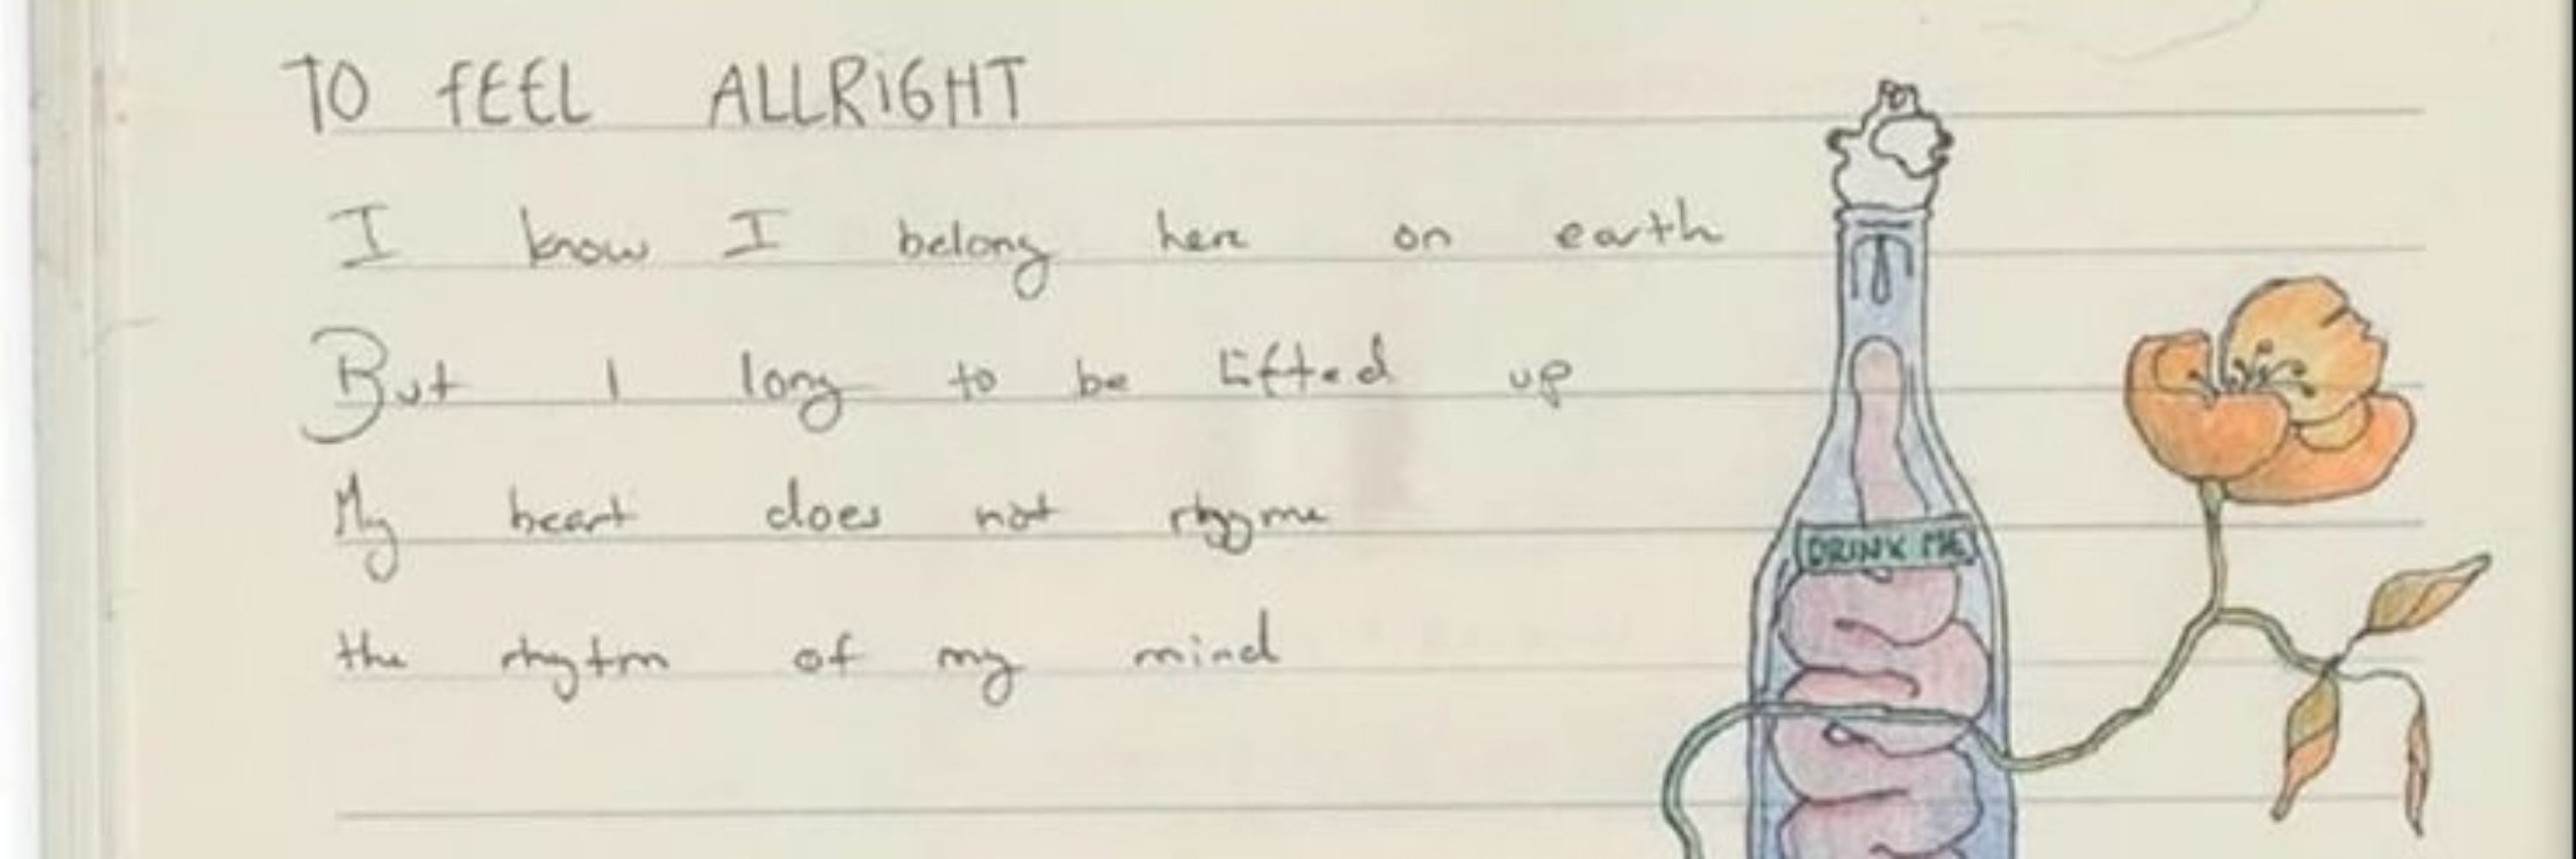 TO FEEL ALLRiGHT
I know I belong here on earth
But I long to be Lifted up
My heart does not rhyme
the rhytm of my mind
DRINK ME